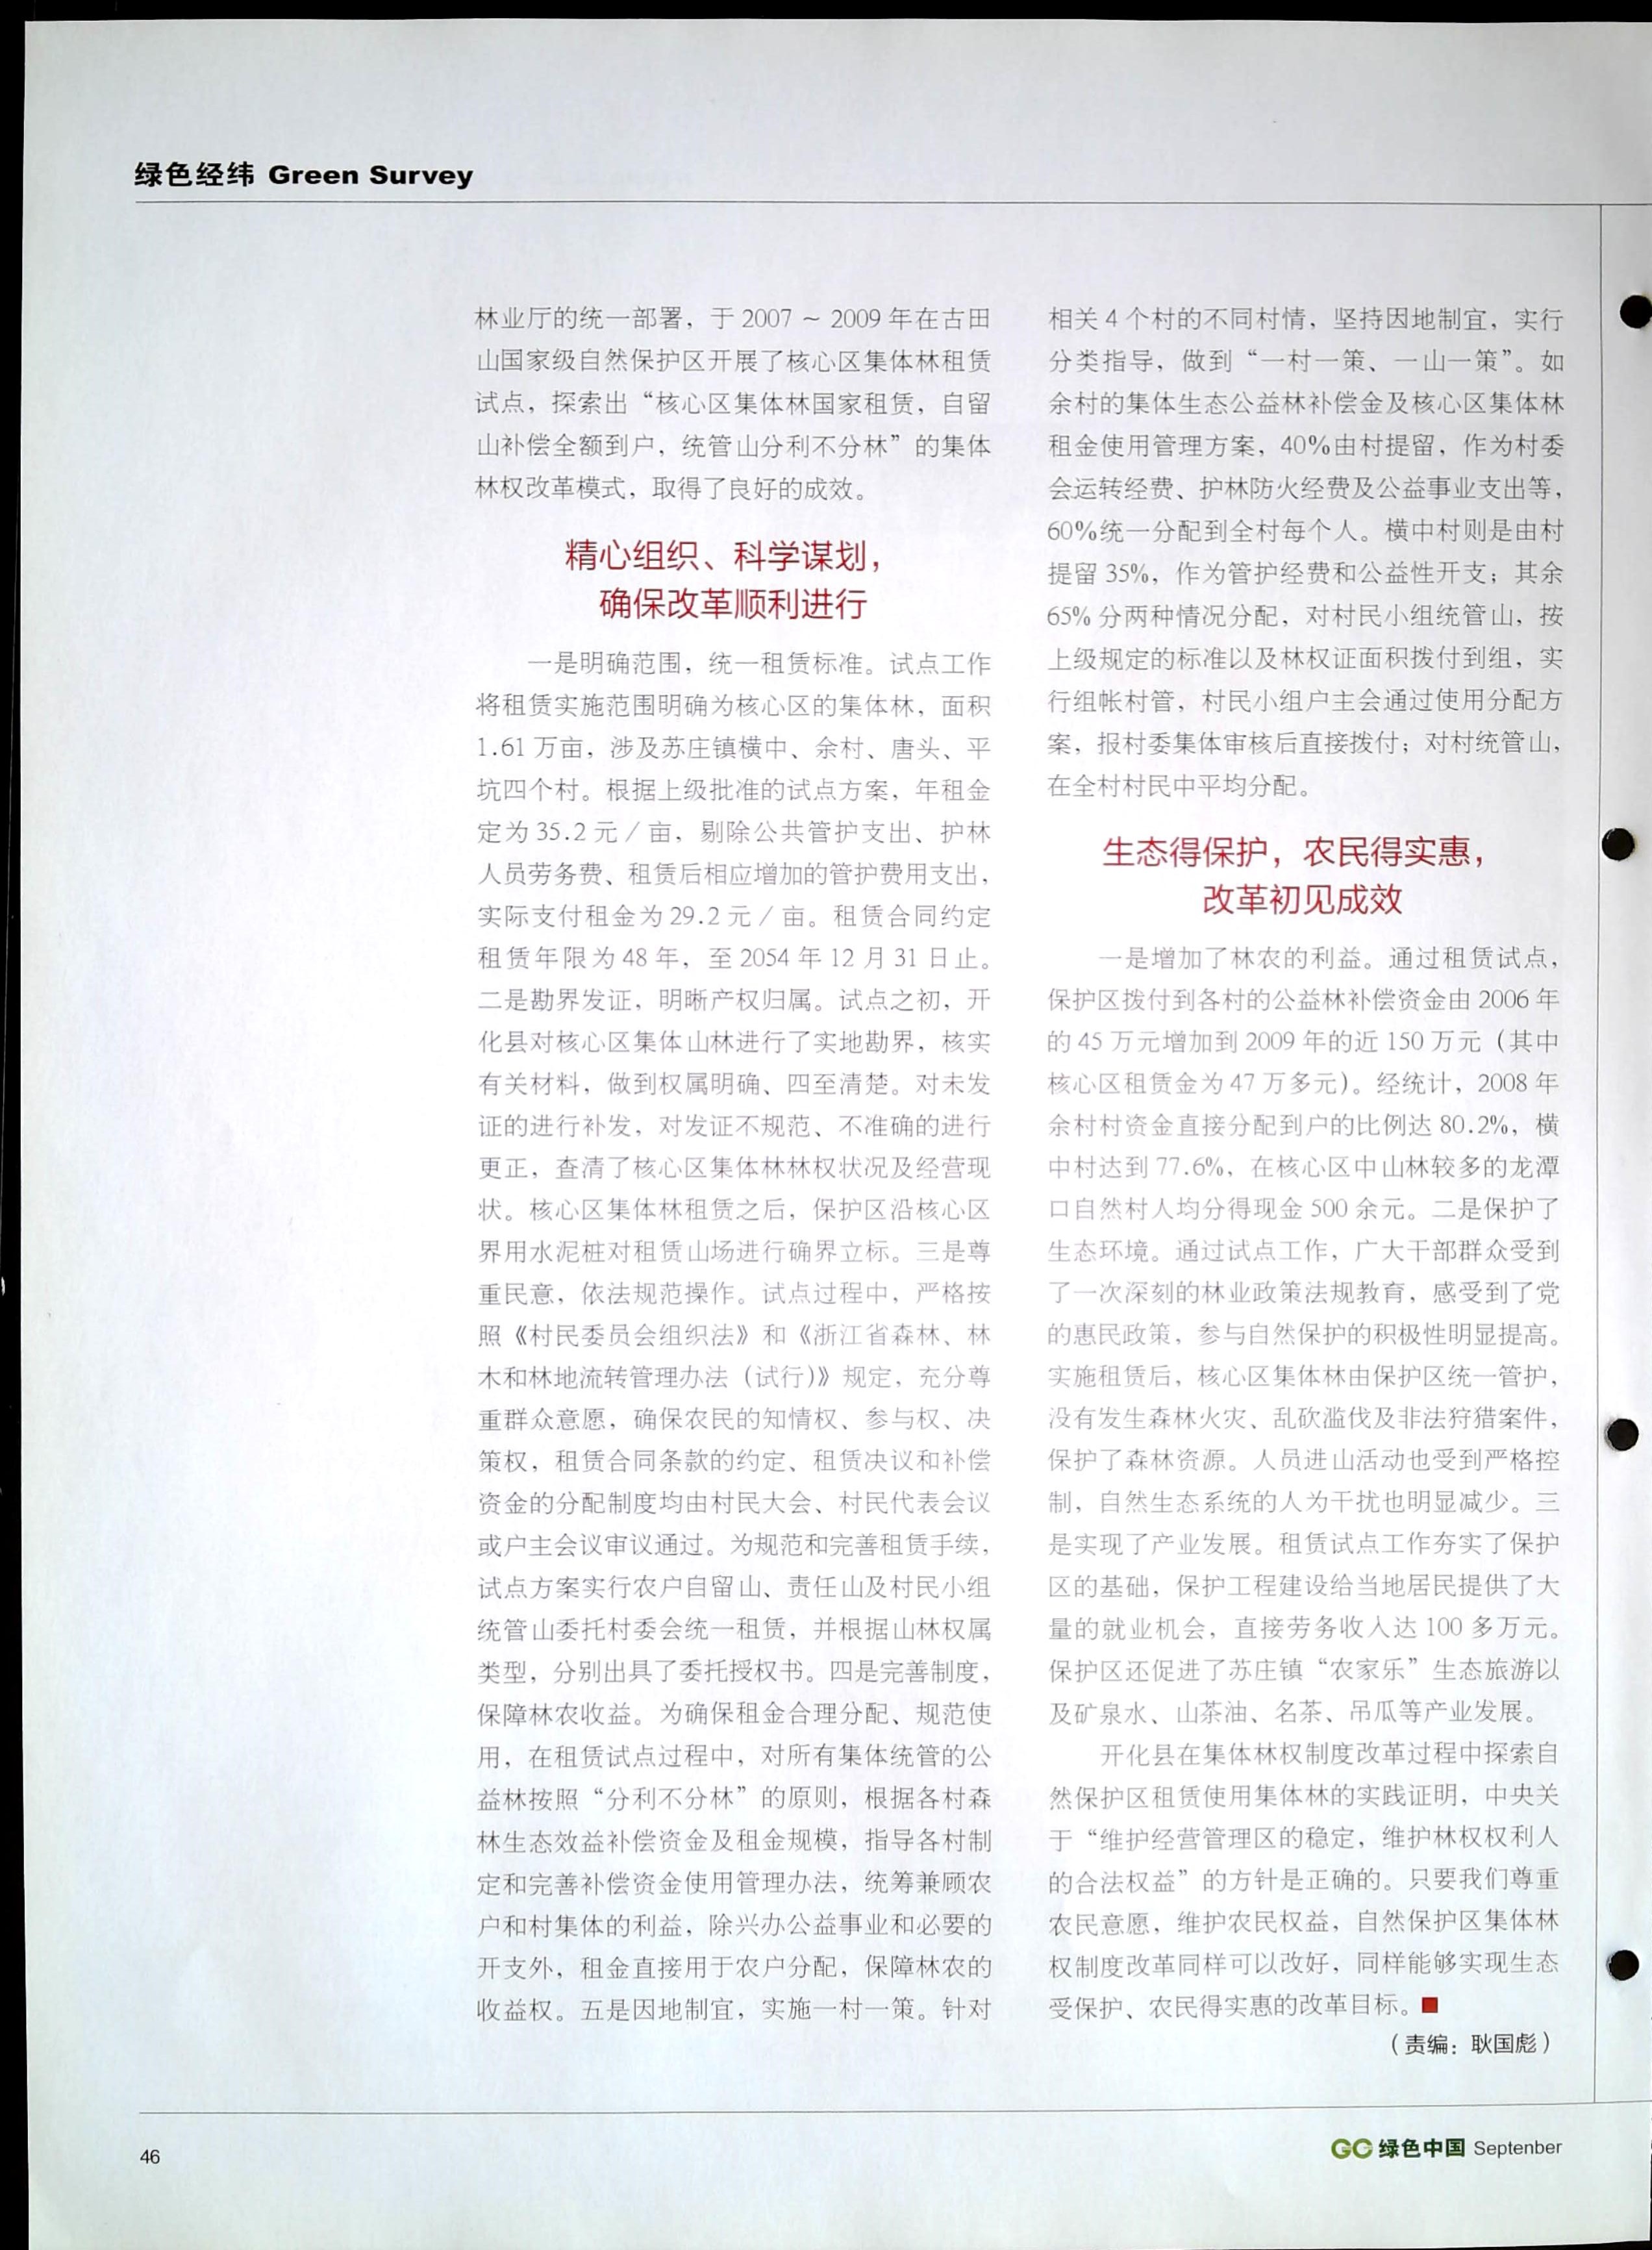 绿色经纬 Green Survey
林业厅的统一部署，于 2007 ～ 2009 年在古田
山国家级自然保护区开展了核心区集体林租赁
试点，探索出“核心区集体林国家租赁，自留
山补偿全额到户，统管山分利不分林”的集体
林权改革模式，取得了良好的成效。
精心组织、科学谋划，
确保改革顺利进行
一是明确范围，统一租赁标准。试点工作
将租赁实施范围明确为核心区的集体林，面积
1.61 万亩，涉及苏庄镇横中、余村、唐头、平
坑四个村。根据上级批准的试点方案，年租金
定为 35.2 元 / 亩，剔除公共管护支出、护林
人员劳务费、租赁后相应增加的管护费用支出，
实际支付租金为 29.2 元 / 亩。租赁合同约定
租赁年限为 48 年，至 2054 年 12 月 31 日止。
二是勘界发证，明晰产权归属。试点之初，开
化县对核心区集体山林进行了实地勘界，核实
有关材料，做到权属明确、四至清楚。对未发
证的进行补发，对发证不规范、不准确的进行
更正，查清了核心区集体林林权状况及经营现
状。核心区集体林租赁之后，保护区沿核心区
界用水泥桩对租赁山场进行确界立标。三是尊
重民意，依法规范操作。试点过程中，严格按
照《村民委员会组织法》和《浙江省森林、林
木和林地流转管理办法（试行）》规定，充分尊
重群众意愿，确保农民的知情权、参与权、决
策权，租赁合同条款的约定、租赁决议和补偿
资金的分配制度均由村民大会、村民代表会议
或户主会议审议通过。为规范和完善租赁手续，
试点方案实行农户自留山、责任山及村民小组
统管山委托村委会统一租赁，并根据山林权属
类型，分别出具了委托授权书。四是完善制度，
保障林农收益。为确保租金合理分配、规范使
用，在租赁试点过程中，对所有集体统管的公
益林按照“分利不分林”的原则，根据各村森
林生态效益补偿资金及租金规模，指导各村制
定和完善补偿资金使用管理办法，统筹兼顾农
户和村集体的利益，除兴办公益事业和必要的
开支外，租金直接用于农户分配，保障林农的
收益权。五是因地制宜，实施一村一策。针对
相关 4 个村的不同村情，坚持因地制宜，实行
分类指导，做到“一村一策、一山一策”。如
余村的集体生态公益林补偿金及核心区集体林
租金使用管理方案，40%由村提留，作为村委
会运转经费、护林防火经费及公益事业支出等，
60%统一分配到全村每个人。横中村则是由村
提留 35%，作为管护经费和公益性开支；其余
65% 分两种情况分配，对村民小组统管山，按
上级规定的标准以及林权证面积拨付到组，实
行组帐村管，村民小组户主会通过使用分配方
案，报村委集体审核后直接拨付；对村统管山，
在全村村民中平均分配。
生态得保护，农民得实惠，
改革初见成效
一是增加了林农的利益。通过租赁试点，
保护区拨付到各村的公益林补偿资金由 2006 年
的 45 万元增加到 2009 年的近 150 万元（其中
核心区租赁金为 47 万多元）。经统计，2008 年
余村村资金直接分配到户的比例达 80.2%，横
中村达到 77.6%，在核心区中山林较多的龙潭
口自然村人均分得现金 500 余元。二是保护了
生态环境。通过试点工作，广大干部群众受到
了一次深刻的林业政策法规教育，感受到了党
的惠民政策，参与自然保护的积极性明显提高。
实施租赁后，核心区集体林由保护区统一管护，
没有发生森林火灾、乱砍滥伐及非法狩猎案件，
保护了森林资源。人员进山活动也受到严格控
制，自然生态系统的人为干扰也明显减少。三
是实现了产业发展。租赁试点工作夯实了保护
区的基础，保护工程建设给当地居民提供了大
量的就业机会，直接劳务收入达 100 多万元。
保护区还促进了苏庄镇“农家乐”生态旅游以
及矿泉水、山茶油、名茶、吊瓜等产业发展。
开化县在集体林权制度改革过程中探索自
然保护区租赁使用集体林的实践证明，中央关
于“维护经营管理区的稳定，维护林权权利人
的合法权益”的方针是正确的。只要我们尊重
农民意愿，维护农民权益，自然保护区集体林
权制度改革同样可以改好，同样能够实现生态
受保护、农民得实惠的改革目标。
（责编：耿国彪）
46
GC 绿色中国 Septenber